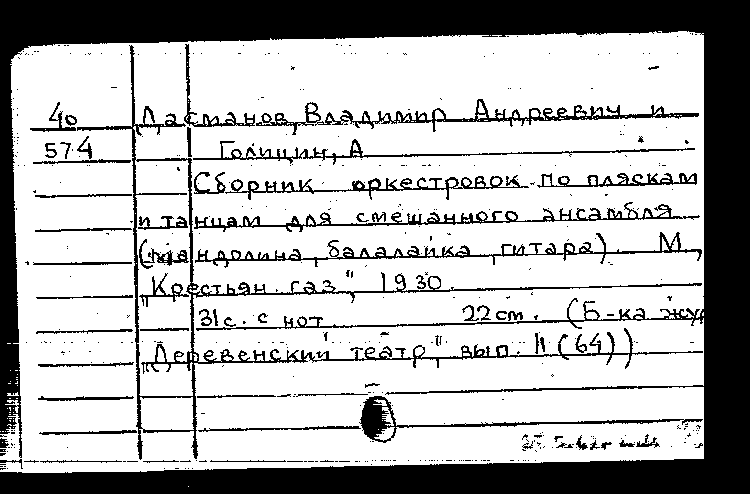 40 Дасманов, Владимир Андреевич и
574 Голицин, А
Сборник оркестровок по пляскам
и танцам для смешанного ансамбля
(мандолина, балалайка, гитара). М.,
"Крестьян. газ", 1930.
31с. с нот 22 см. (Б-ка жур
"Деревенский театр", вып. 11 (64))